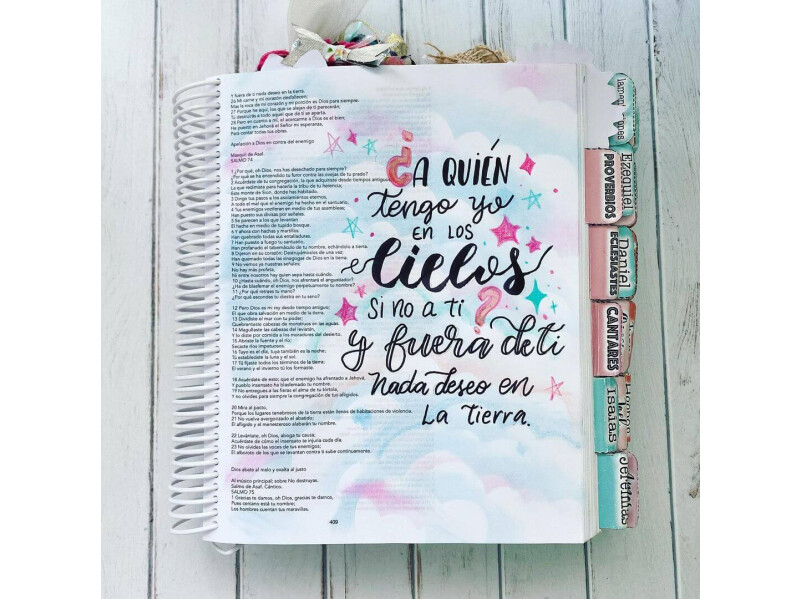 Y fuera de ti nada deseo en la tierra.
26 Mi carne y mi corazón desfallecen;
Mas la roca de mi corazón y mi porción es Dios para siempre.
27 Porque he aquí, los que se alejan de ti perecerán;
Tú destruirás a todo aquel que de ti se aparta.
28 Pero en cuanto a mí, el acercarme a Dios es el bien;
He puesto en Jehová el Señor mi esperanza,
Para contar todas tus obras.
Apelación a Dios en contra del enemigo
Masquil de Asaf.
SALMO 74
1 ¿Por qué, oh Dios, nos has desechado para siempre?
¿Por qué se ha encendido tu furor contra las ovejas de tu prado?
2 Acuérdate de tu congregación, la que adquiriste desde tiempos antiguos,
La que redimiste para hacerla la tribu de tu herencia;
Este monte de Sion, donde has habitado.
3 Dirige tus pasos a los asolamientos eternos,
A todo el mal que el enemigo ha hecho en el santuario.
4 Tus enemigos vociferan en medio de tus asambleas;
Han puesto sus divisas por señales.
5 Se parecen a los que levantan
El hacha en medio de tupido bosque.
6 Y ahora con hachas y martillos
Han quebrado todas sus entalladuras.
7 Han puesto a fuego tu santuario,
Han profanado el tabernáculo de tu nombre, echándolo a tierra.
8 Dijeron en su corazón: Destruyámoslos de una vez;
Han quemado todas las sinagogas de Dios en la tierra.
9 No vemos ya nuestras señales;
No hay más profeta,
Ni entre nosotros hay quien sepa hasta cuándo.
10 ¿Hasta cuándo, oh Dios, nos afrentará el angustiador?
¿Ha de blasfemar el enemigo perpetuamente tu nombre?
11 ¿Por qué retraes tu mano?
¿Por qué escondes tu diestra en tu seno?
12 Pero Dios es mi rey desde tiempo antiguo;
El que obra salvación en medio de la tierra.
13 Dividiste el mar con tu poder;
Quebrantaste cabezas de monstruos en las aguas.
14 Magullaste las cabezas del leviatán,
Y lo diste por comida a los moradores del desierto.
15 Abriste la fuente y el río;
Secaste ríos impetuosos.
16 Tuyo es el día, tuya también es la noche;
Tú estableciste la luna y el sol.
17 Tú fijaste todos los términos de la tierra;
El verano y el invierno tú los formaste.
18 Acuérdate de esto: que el enemigo ha afrentado a Jehová,
Y pueblo insensato ha blasfemado tu nombre.
19 No entregues a las fieras el alma de tu tórtola,
Y no olvides para siempre la congregación de tus afligidos.
20 Mira al pacto,
Porque los lugares tenebrosos de la tierra están llenos de habitaciones de violencia.
21 No vuelva avergonzado el abatido;
El afligido y el menesteroso alabarán tu nombre.
22 Levántate, oh Dios, aboga tu causa;
Acuérdate de cómo el insensato te injuria cada día.
23 No olvides las voces de tus enemigos;
El alboroto de los que se levantan contra ti sube continuamente.
Dios abate al malo y exalta al justo
Al músico principal; sobre No destruyas.
Salmo de Asaf. Cántico.
SALMO 75
1 Gracias te damos, oh Dios, gracias te damos,
Pues cercano está tu nombre;
Los hombres cuentan tus maravillas.
409
¿A QUIÉN
tengo yo
EN LOS
Cielos
Si no a ti?
Y fuera de ti
Nada deseo en
La Tierra.
Ezequiel
PROVERBIOS
Daniel
ECLESIASTES
CANTARES
Isaías
Jeremías